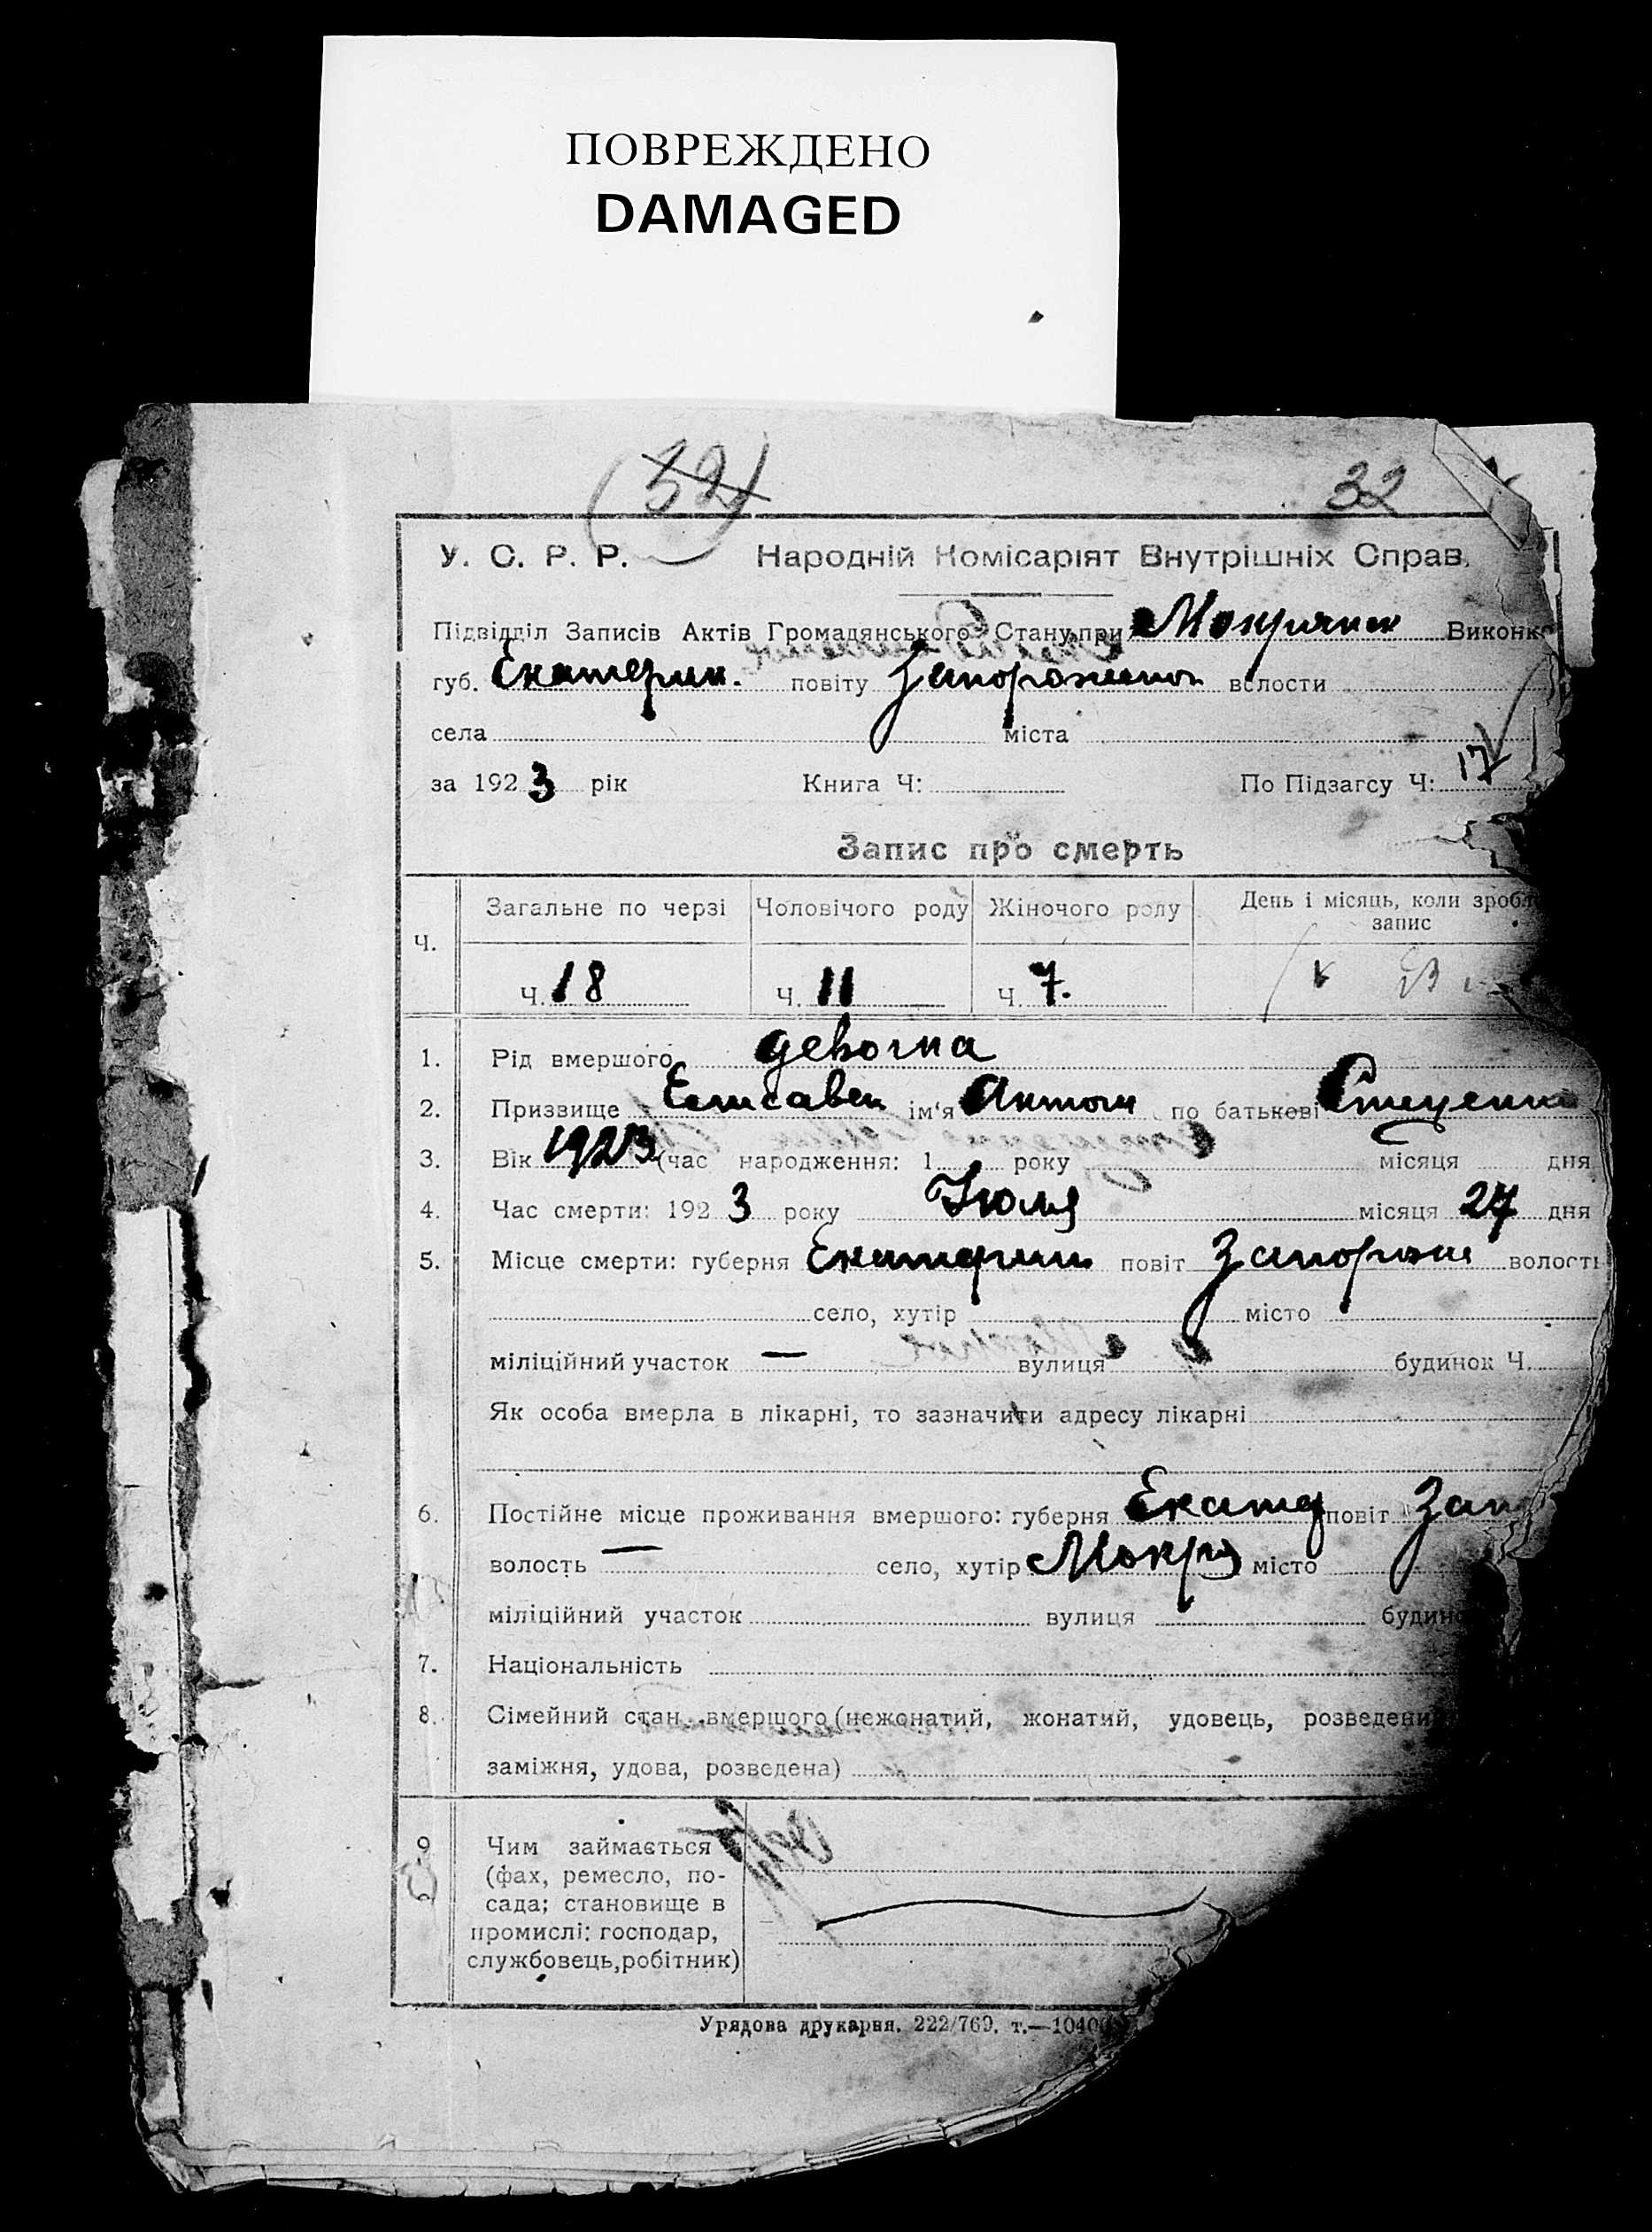 ПОВРЕЖДЕНО
DAMAGED
(32) 32
У. С. Р. Р. Народній Комісаріят Внутрішніх Справ.
Підвідділ Записів Актів Громадянського Стану при Виконк
губ. Екатерин. повіту волости
села міста
за 1923 рік Книга Ч: По Підзагсу Ч: 17
Запис про смерть
Ч. Загальне по черзі Чоловічого роду Жіночого роду День і місяць, коли зробл
запис
Ч. 18 Ч. 11 Ч. 7.
1. Рід вмершого
2. Призвище Елисавет ім'я Антон по батькові Стеценко
3. Вік 1923 (час народження: 1 року місяця дня
4. Час смерти: 1923 року Июля місяця 27 дня
5. Місце смерти: губерня Екатерин повіт Запорож волость
село, хутір місто
міліційний участок — вулиця будинок Ч.
Як особа вмерла в лікарні, то зазначити адресу лікарні
6. Постійне місце проживання вмершого: губерня Екатер повіт Зап
волость — село, хутір Мокр місто
міліційний участок вулиця будин
7. Національність
8. Сімейний стан вмершого (нежонатий, жонатий, удовець, розведени
заміжня, удова, розведена)
9 Чим займається
(фах, ремесло, по-
сада; становище в
промислі: господар,
службовець, робітник)
Урядова друкарня. 222/769. т.—10400